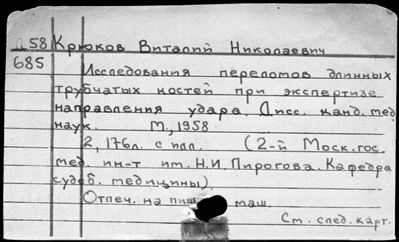 58 Крюков Виталий Николаевич
685
Исследования переломов длинных
трубчатых костей при экспертизе
направления удара. Дисс. канд. мед
наук. М., 1958.
2, 176л. с илл. (2-й Моск. гос.
мед. ин-т им. Н.И. Пирогова. Кафедра
судеб. медицины).
Отпеч. на пиш. маш.
См. след. карт.